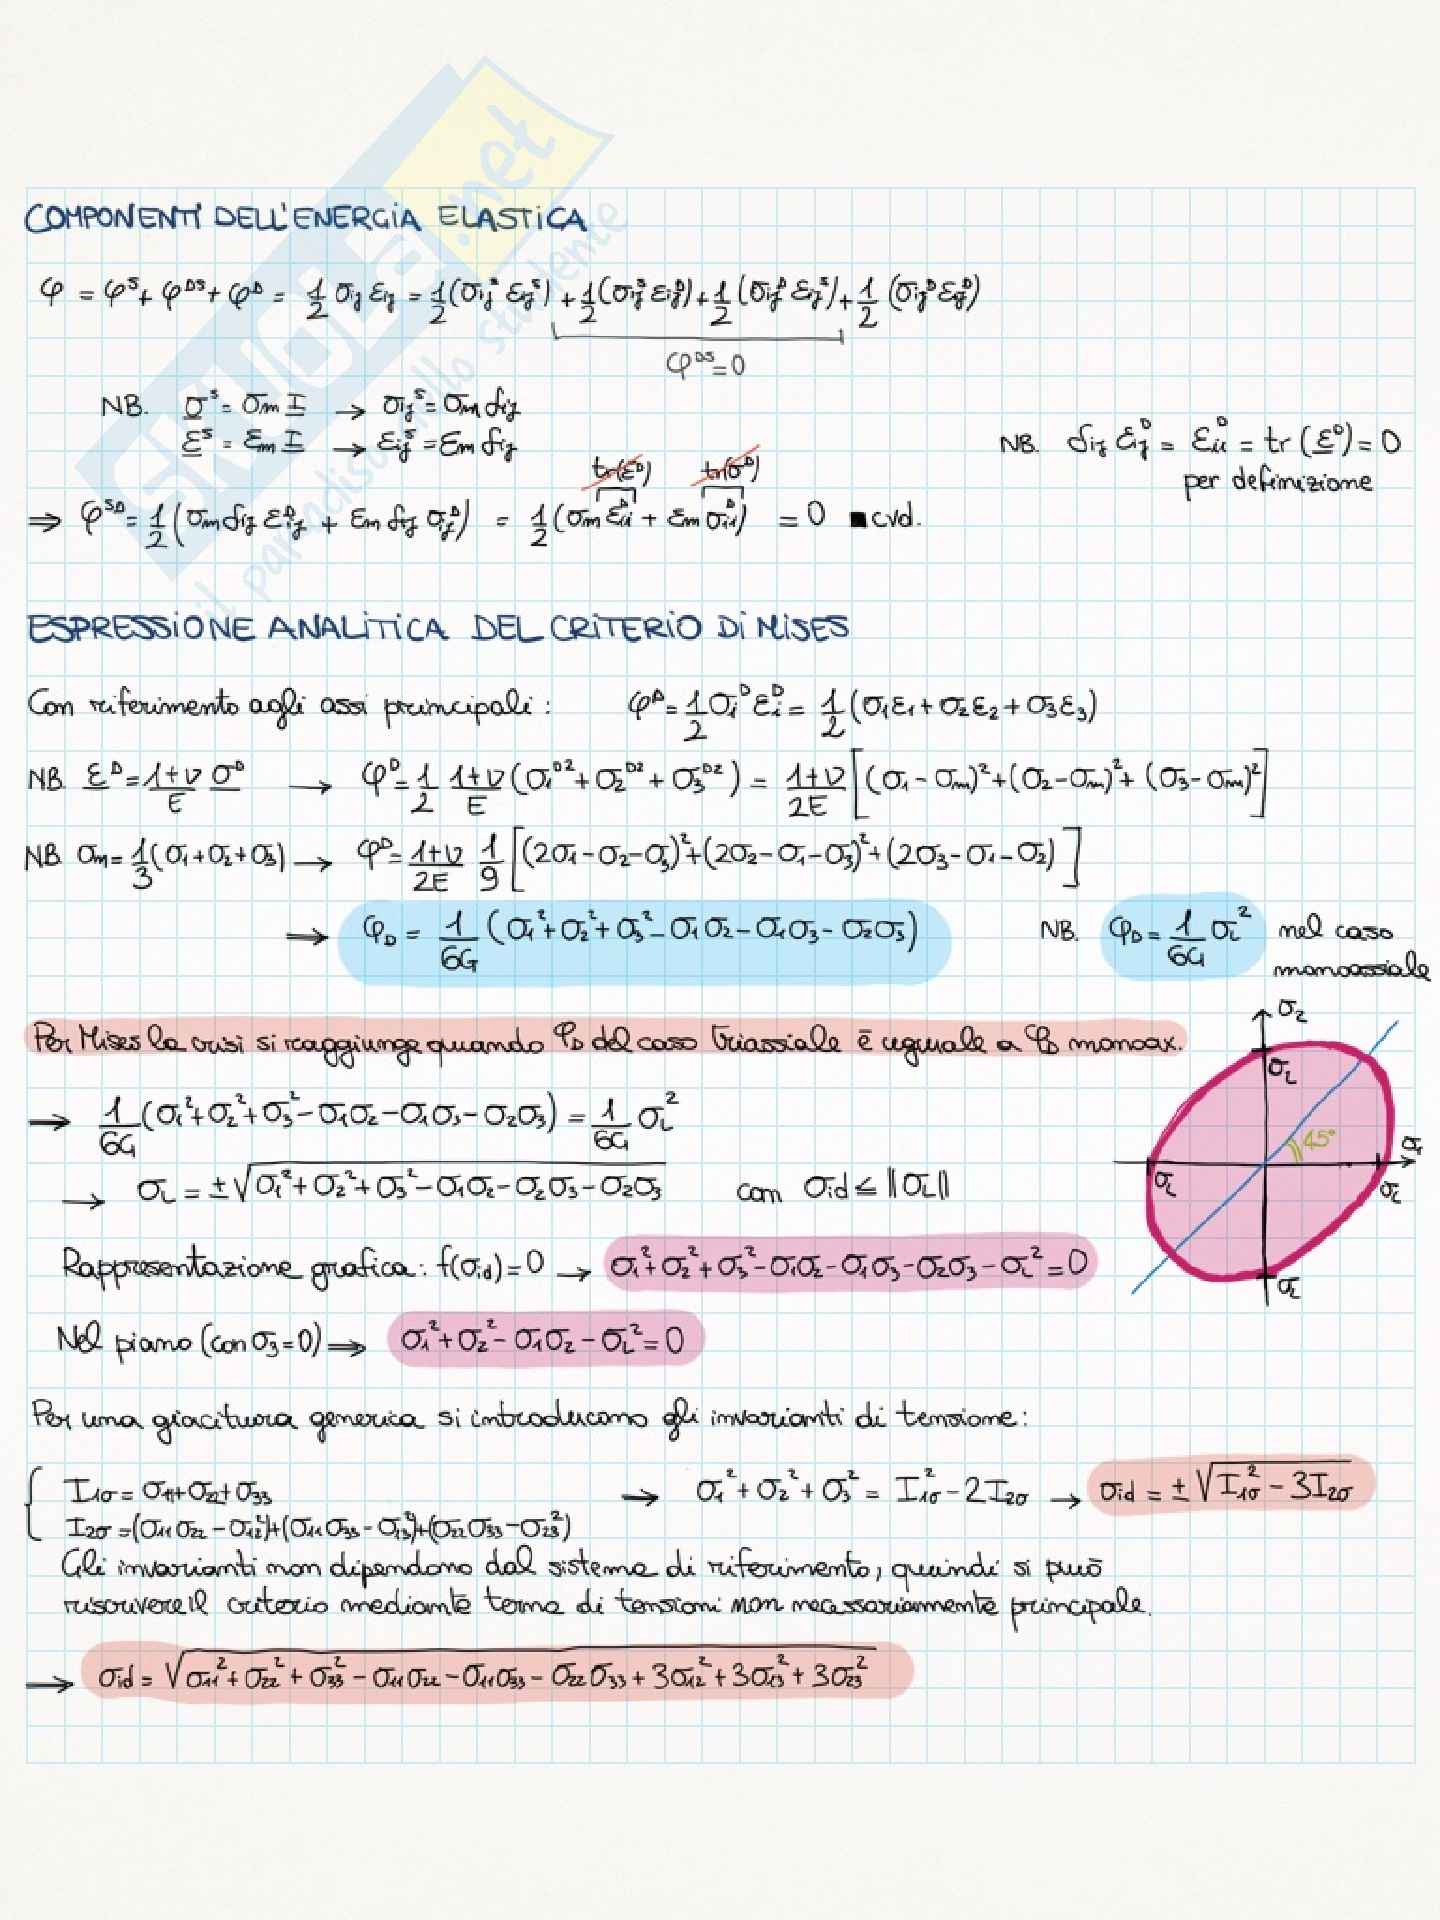 SKUOLA.net
il paradiso dello studente
COMPONENTI DELL'ENERGIA ELASTICA
φ = φˢ + φᴰˢ + φᴰ = 1/2 σij εij = 1/2 (σijˢ εijˢ) + 1/2 (σijˢ εijᴰ) + 1/2 (σijᴰ εijˢ) + 1/2 (σijᴰ εijᴰ)
φᴰˢ = 0
NB. σˢ = σm I → σijˢ = σm δij
εˢ = εm I → εijˢ = εm δij
NB. δij εijᴰ = εiiᴰ = tr (εᴰ) = 0
per definizione
tr(εᴰ) tr(σᴰ)
⇒ φˢᴰ = 1/2 (σm δij εijᴰ + εm δij σijᴰ) = 1/2 (σm εiiᴰ + εm σiiᴰ) = 0 ■ cvd.
ESPRESSIONE ANALITICA DEL CRITERIO DI MISES
Con riferimento agli assi principali : φᴰ = 1/2 σiᴰ εiᴰ = 1/2 (σ1ε1 + σ2ε2 + σ3ε3)
NB. εᴰ = 1+ν/E σᴰ → φᴰ = 1/2 1+ν/E (σ1ᴰ² + σ2ᴰ² + σ3ᴰ²) = 1+ν/2E [(σ1 - σm)² + (σ2 - σm)² + (σ3 - σm)²]
NB σm = 1/3 (σ1 + σ2 + σ3) → φᴰ = 1+ν/2E 1/9 [(2σ1 - σ2 - σ3)² + (2σ2 - σ1 - σ3)² + (2σ3 - σ1 - σ2)]
⇒ φD = 1/6G (σ1² + σ2² + σ3² - σ1σ2 - σ1σ3 - σ2σ3) NB. φD = 1/6G σL² nel caso
monoassiale
Per Mises la crisi si raggiunge quando φD del caso triassiale è uguale a φD monoax.
→ 1/6G (σ1² + σ2² + σ3² - σ1σ2 - σ1σ3 - σ2σ3) = 1/6G σL²
→ σL = ±√σ1² + σ2² + σ3² - σ1σ2 - σ2σ3 - σ2σ3 con σid ≤ ‖σL‖
σ2
σL
45°
σ1
σL
σL
σL
Rappresentazione grafica : f(σid) = 0 → σ1² + σ2² + σ3² - σ1σ2 - σ1σ3 - σ2σ3 - σL² = 0
Nel piano (con σ3 = 0) ⇒ σ1² + σ2² - σ1σ2 - σL² = 0
Per una giacitura generica si introducono gli invarianti di tensione :
{ I1σ = σ11 + σ22 + σ33 → σ1² + σ2² + σ3² = I1σ² - 2I2σ → σid = ±√I1σ² - 3I2σ
I2σ = (σ11σ22 - σ12²) + (σ11σ33 - σ13²) + (σ22σ33 - σ23²)
Gli invarianti non dipendono dal sistema di riferimento, quindi si può
riscrivere il criterio mediante terna di tensioni non necessariamente principale.
→ σid = √σ11² + σ22² + σ33² - σ11σ22 - σ11σ33 - σ22σ33 + 3σ12² + 3σ13² + 3σ23²